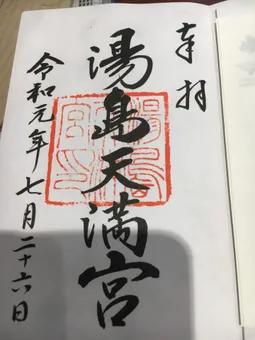 奉拝
湯島天満宮
令和元年七月二十六日